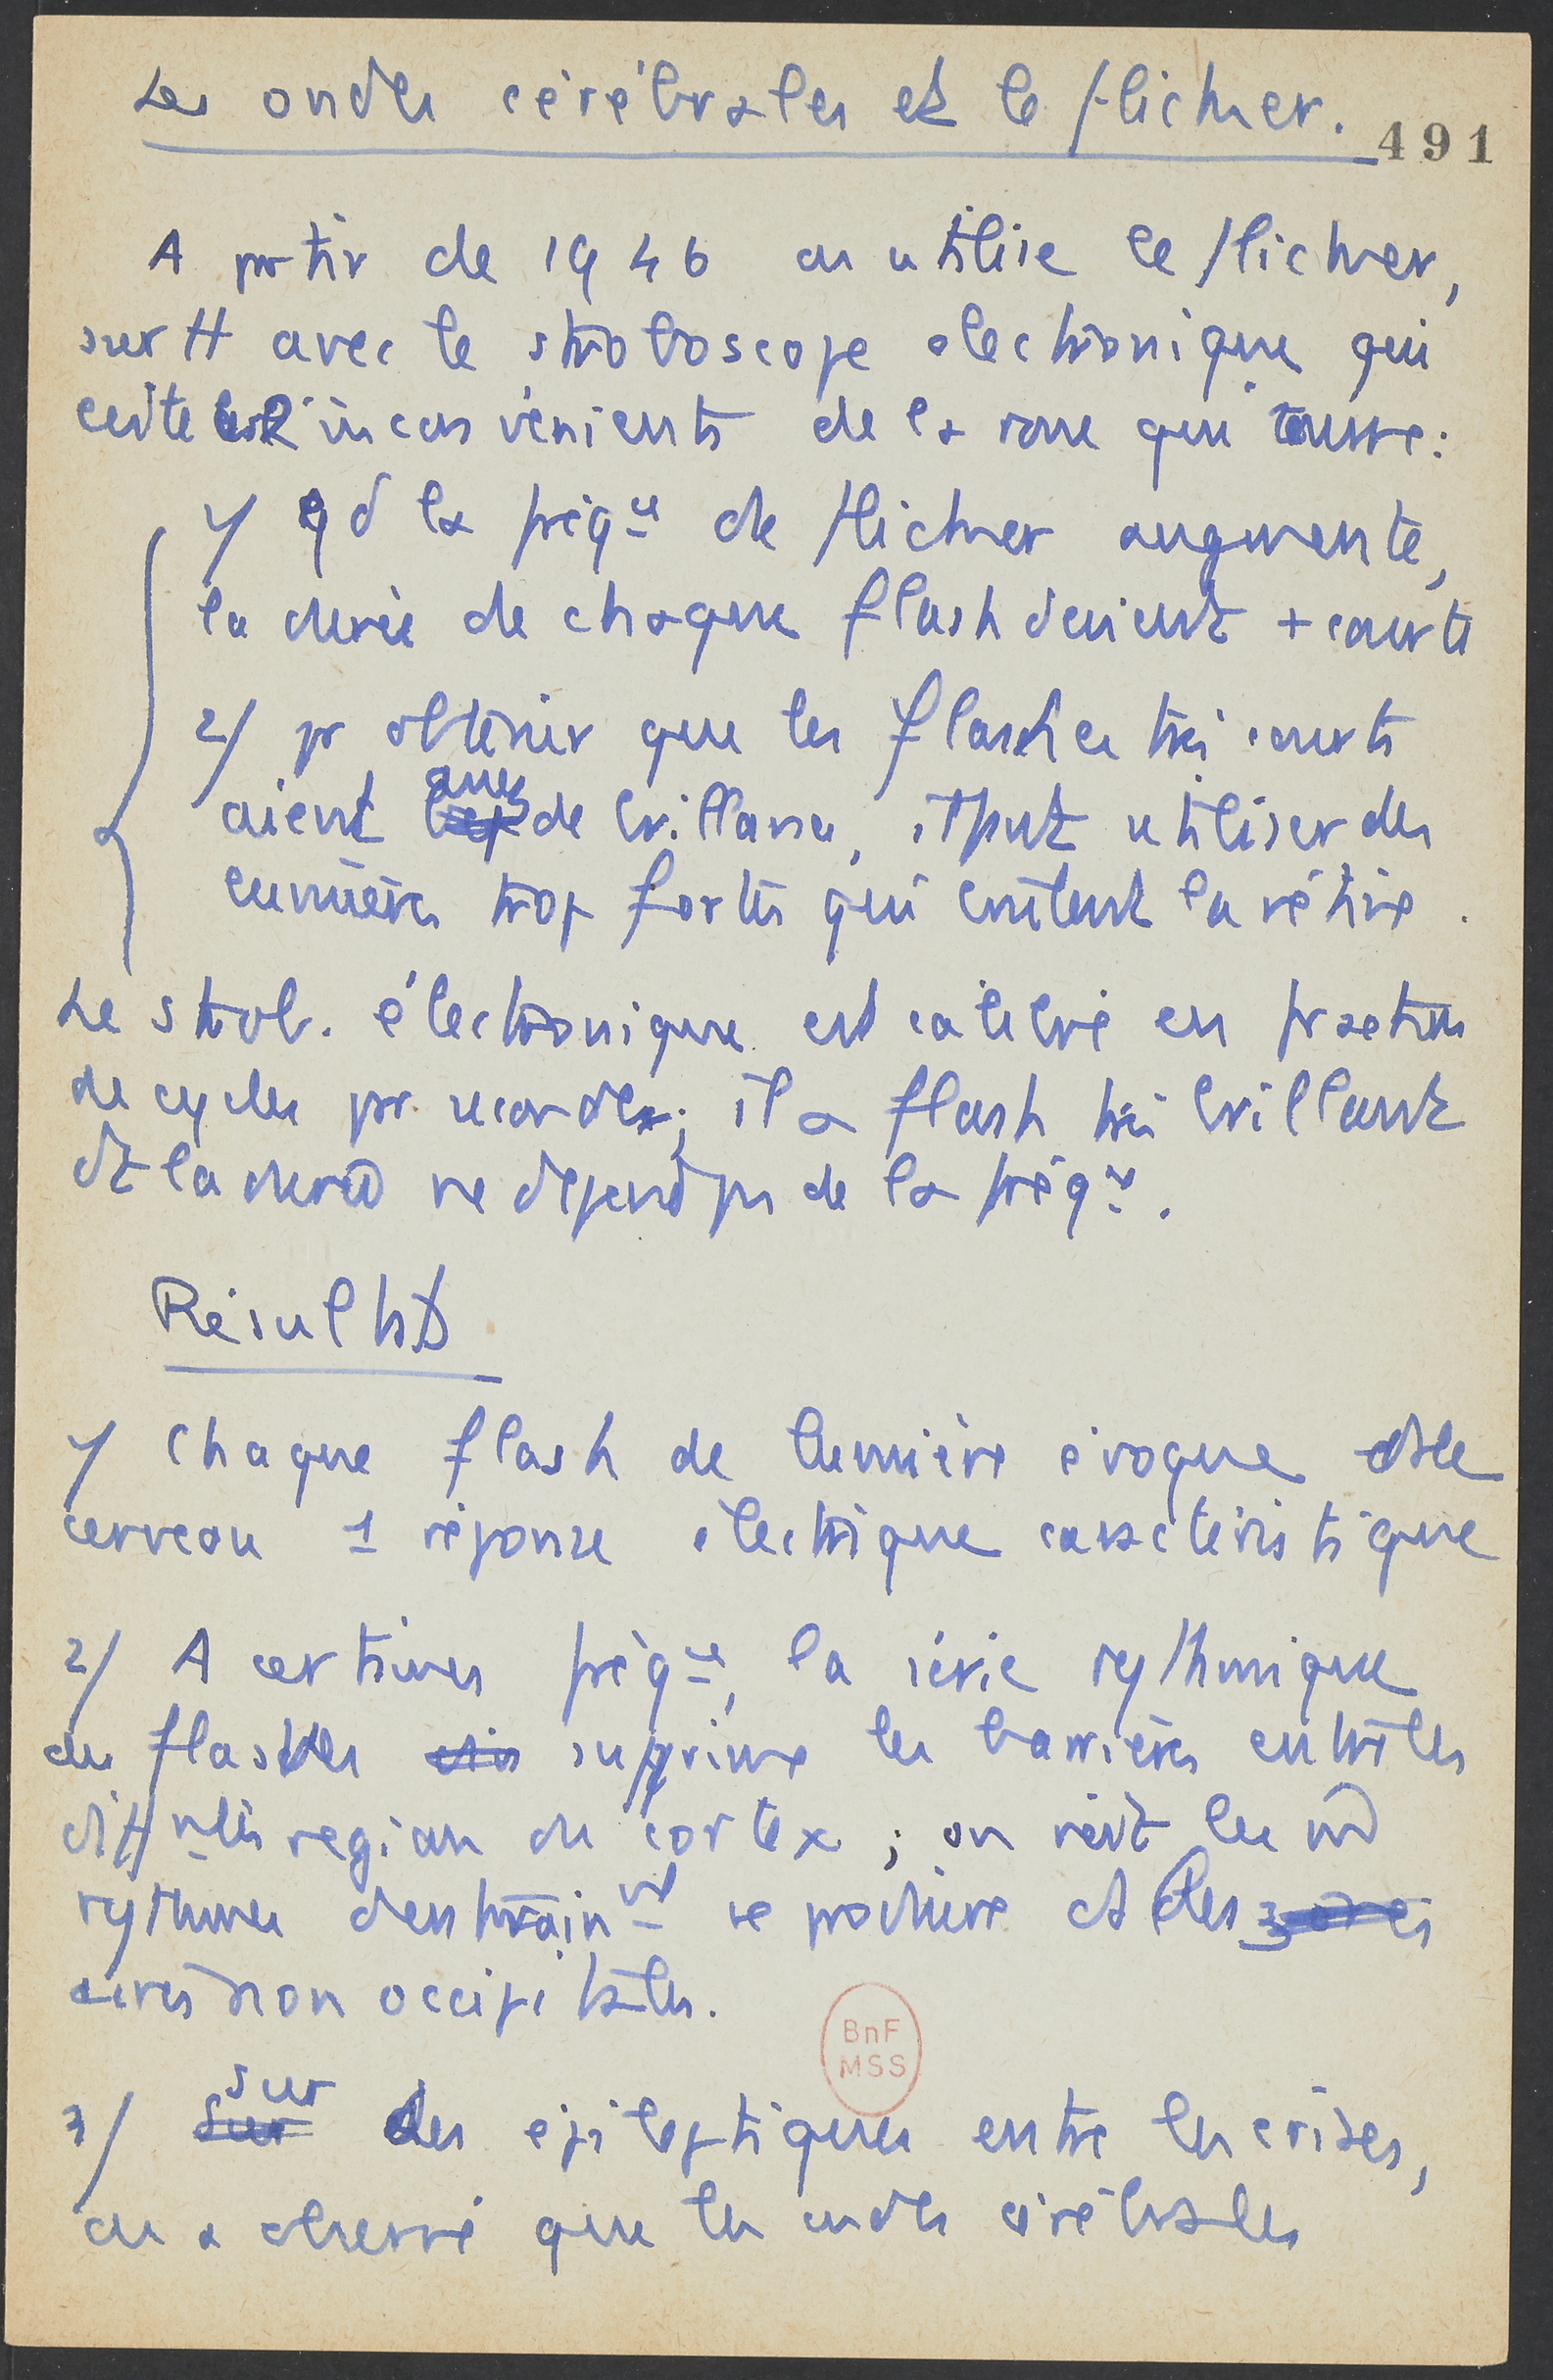 Les ondes cérébrales et le flicker.
491
A partir de 1946 on utilise le flicker,
surtt avec le stroboscope électronique qui
évite les inconvénients de la roue qui tourne :
1/ qd la fréqce de flicker augmente,
la durée de chaque flash devient + courte
2/ pr obtenir que les flashes très courts
aient assez de brillance, il faut utiliser des
lumières trop fortes qui brûlent la rétine.
Le strob. électronique est calibré en fractions
de cycles par seconde ; il a flash très brillant
dt la durée ne dépend pas de la fréqce.
Résultats
1/ Chaque flash de lumière évoque ds le
cerveau 1 réponse électrique caractéristique
2/ A certaines fréqces, la série rythmique
des flashes supprime les barrières entre les
difftes régions du cortex ; on voit les
rythmes d'entrainmt se produire ds des zones
aires non occipitales.
3/ Sur sur des épileptiques entre les crises,
on a observé que les ondes cérébrales
BnF
MSS